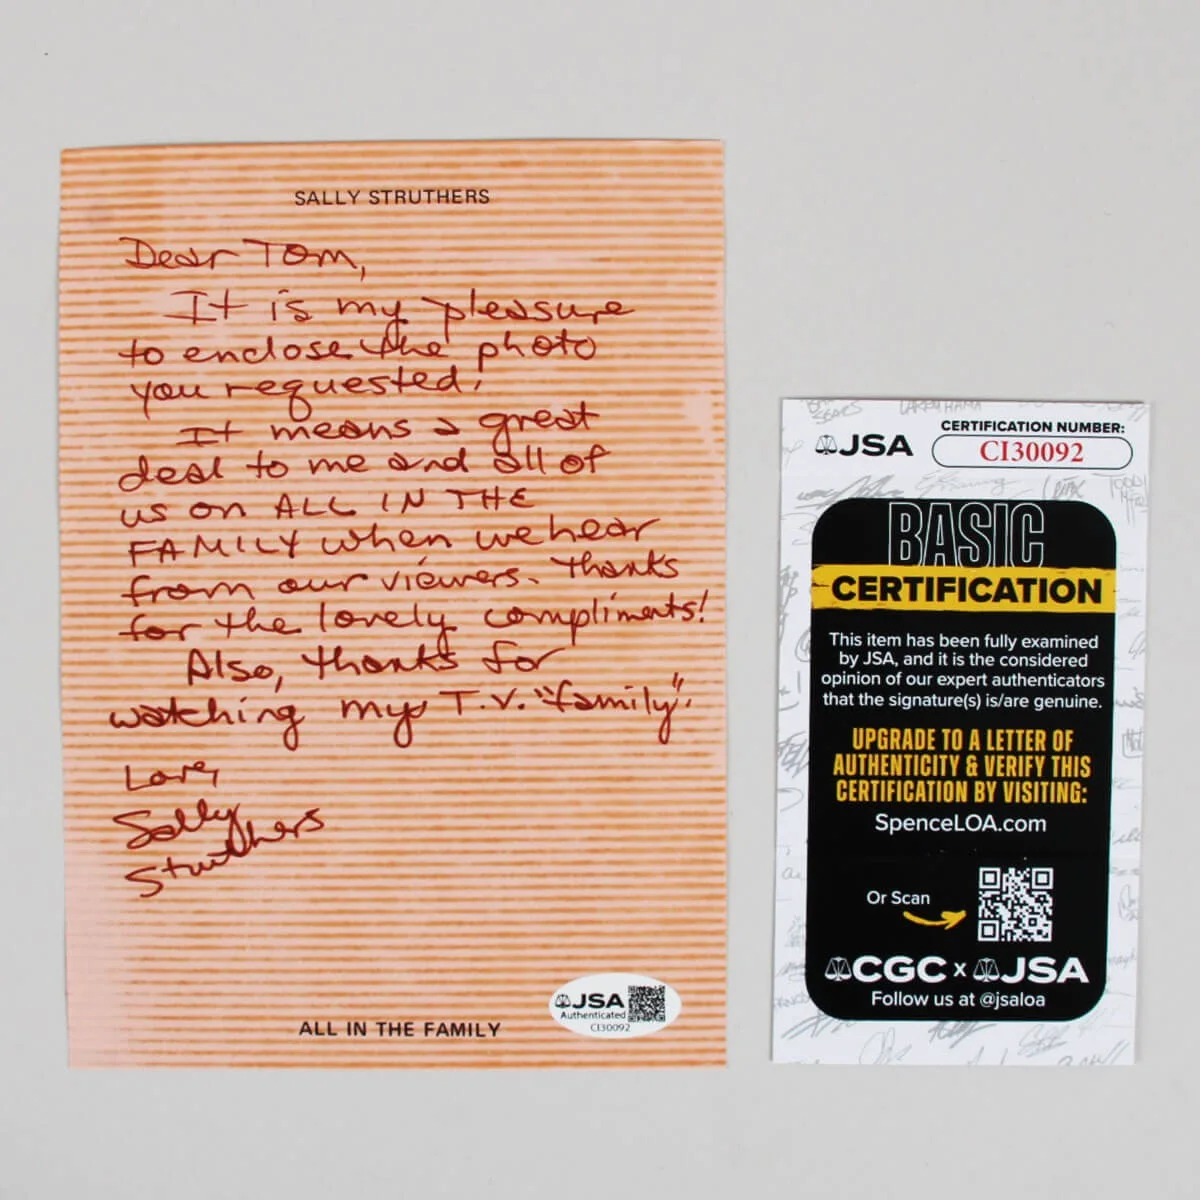 SALLY STRUTHERS
Dear Tom,
It is my pleasure
to enclose the photo
you requested!
It means a great
deal to me and all of
us on ALL IN THE
FAMILY when we hear
from our viewers. Thanks
for the lovely compliments!
Also, thanks for
watching my T.V. "family".
Love,
Sally
Struthers
JSA
Authenticated
CI30092
ALL IN THE FAMILY
JSA
CERTIFICATION NUMBER:
CI30092
BASIC
CERTIFICATION
This item has been fully examined
by JSA, and it is the considered
opinion of our expert authenticators
that the signature(s) is/are genuine.
UPGRADE TO A LETTER OF
AUTHENTICITY & VERIFY THIS
CERTIFICATION BY VISITING:
SpenceLOA.com
Or Scan
CGC x JSA
Follow us at @jsaloa